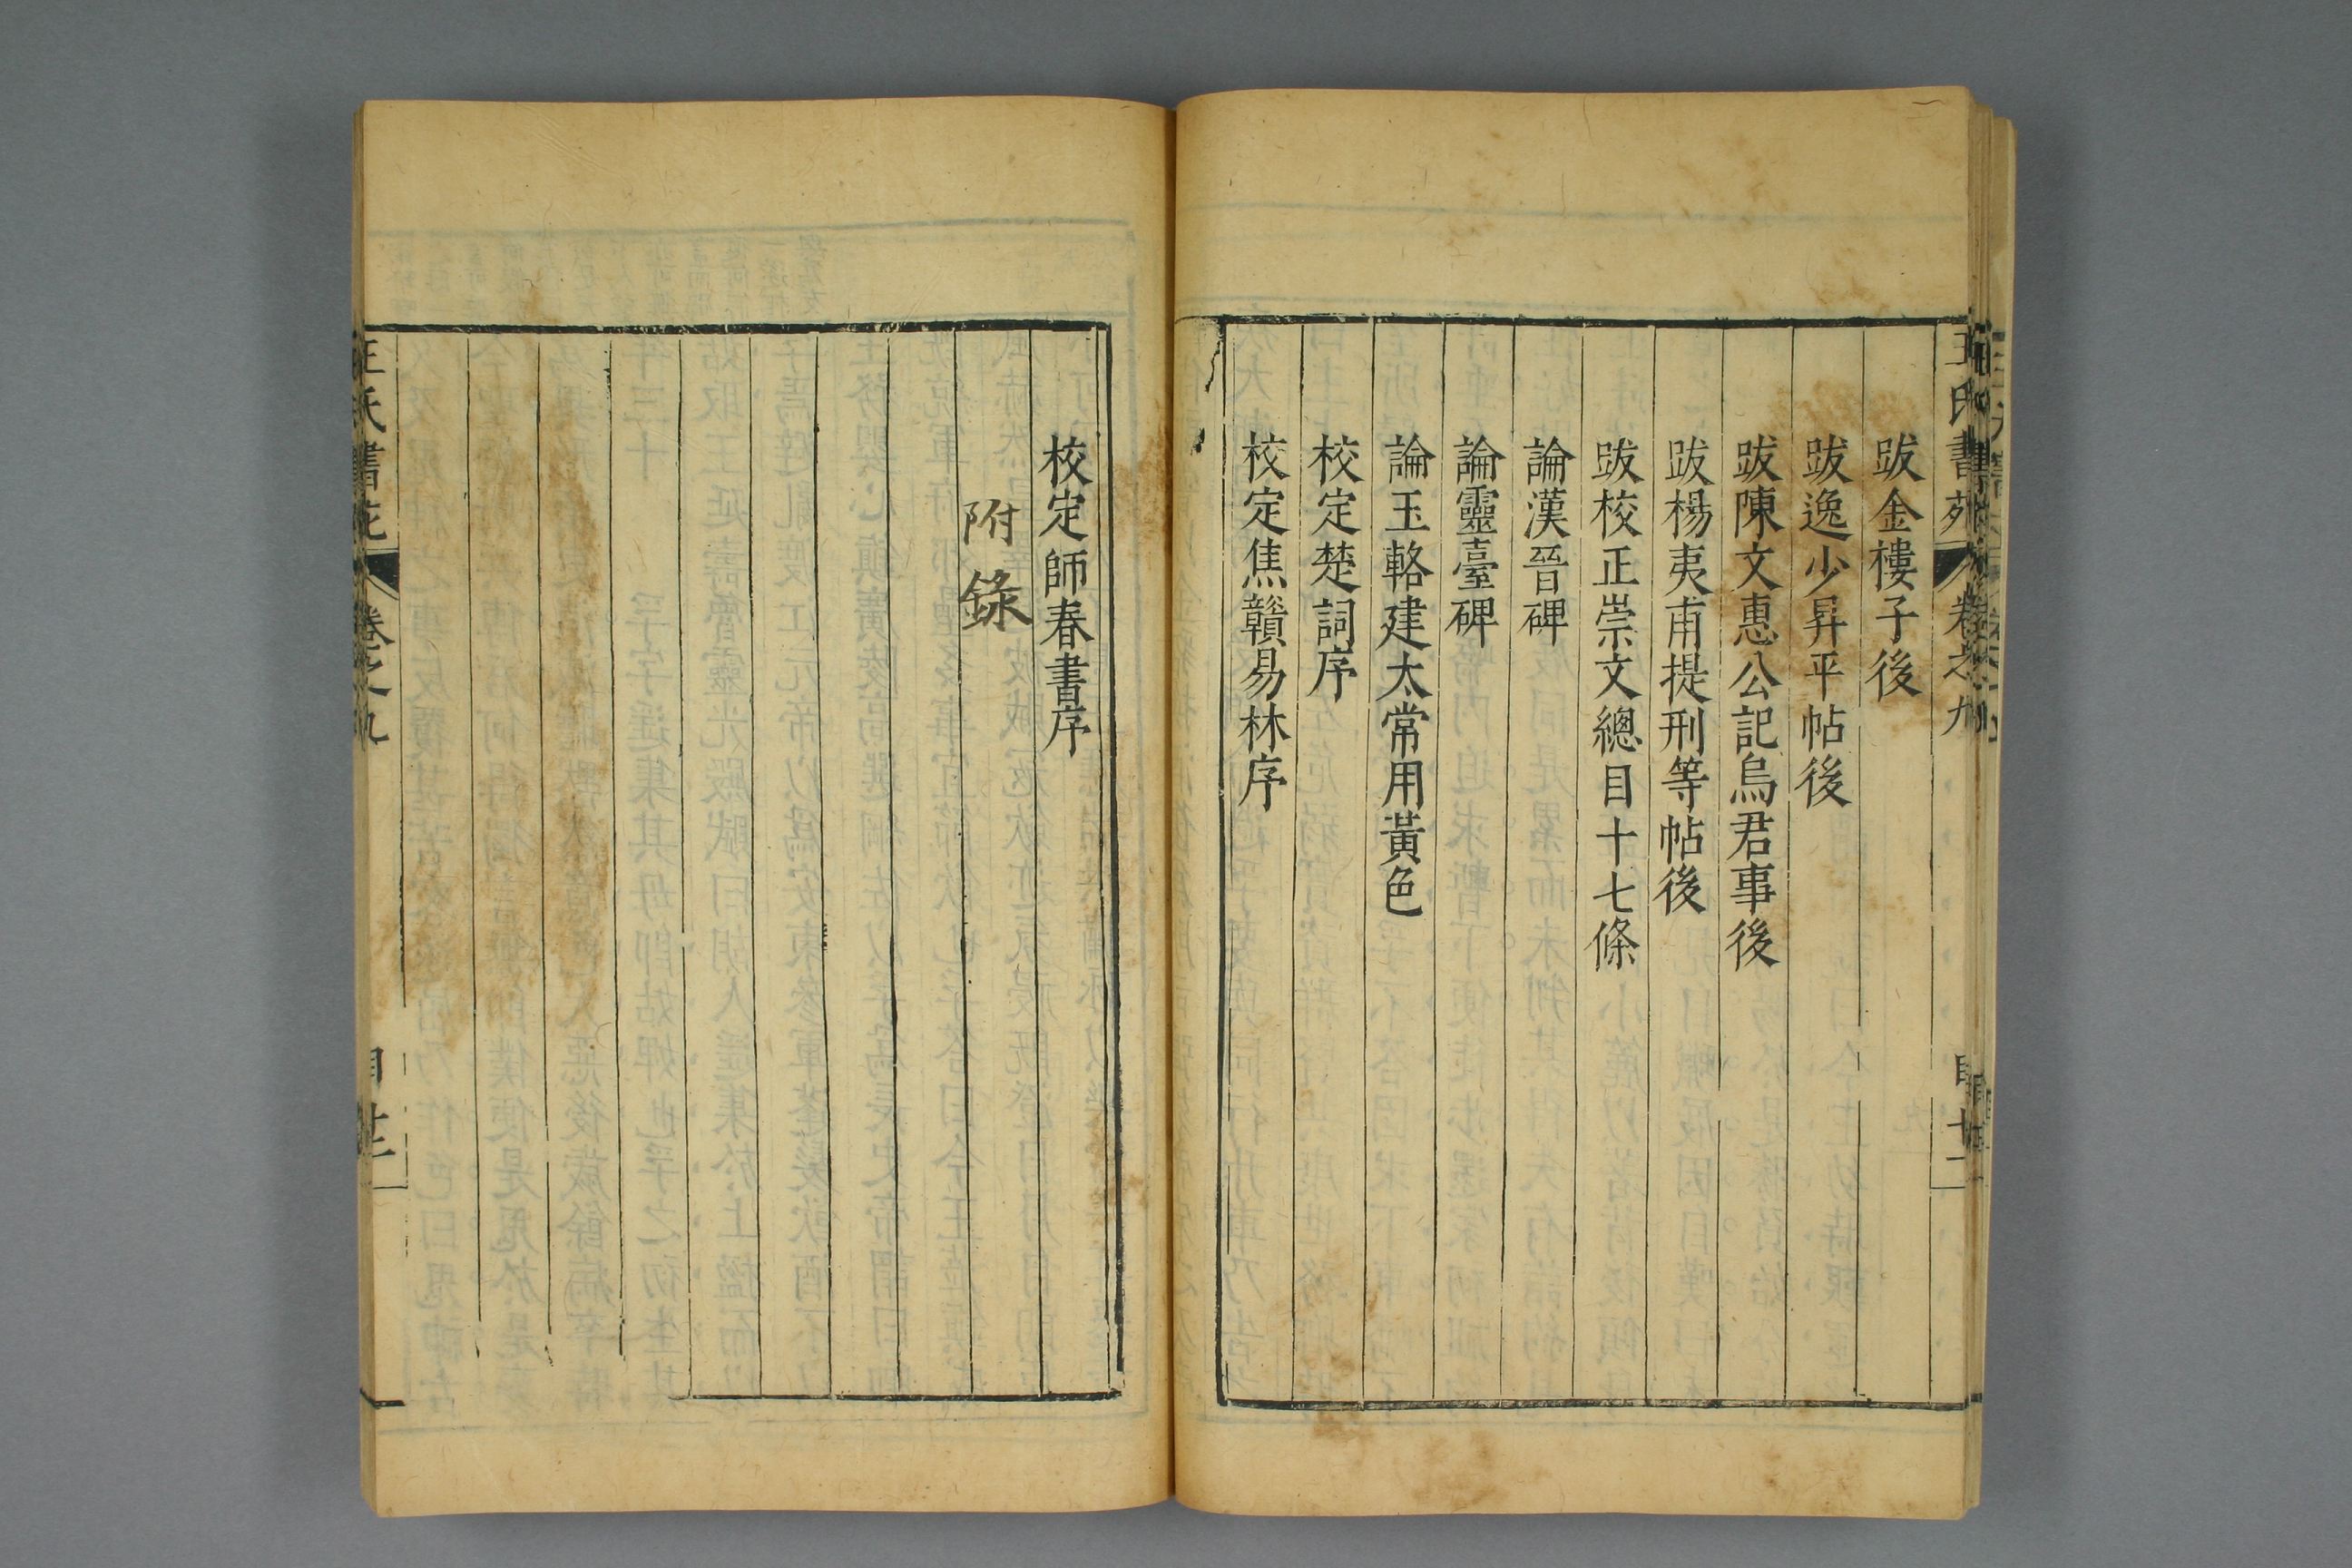 王氏書苑 卷之九 目 十二
跋金樓子後
跋逸少昇平帖後
跋陳文惠公記烏君事後
跋楊夷甫提刑等帖後
跋校正崇文總目十七條
論漢晉碑
論靈臺碑
論玉輅建太常用黃色
校定楚詞序
校定焦贛易林序
校定師春書序
附錄
王氏書苑 卷之九 目